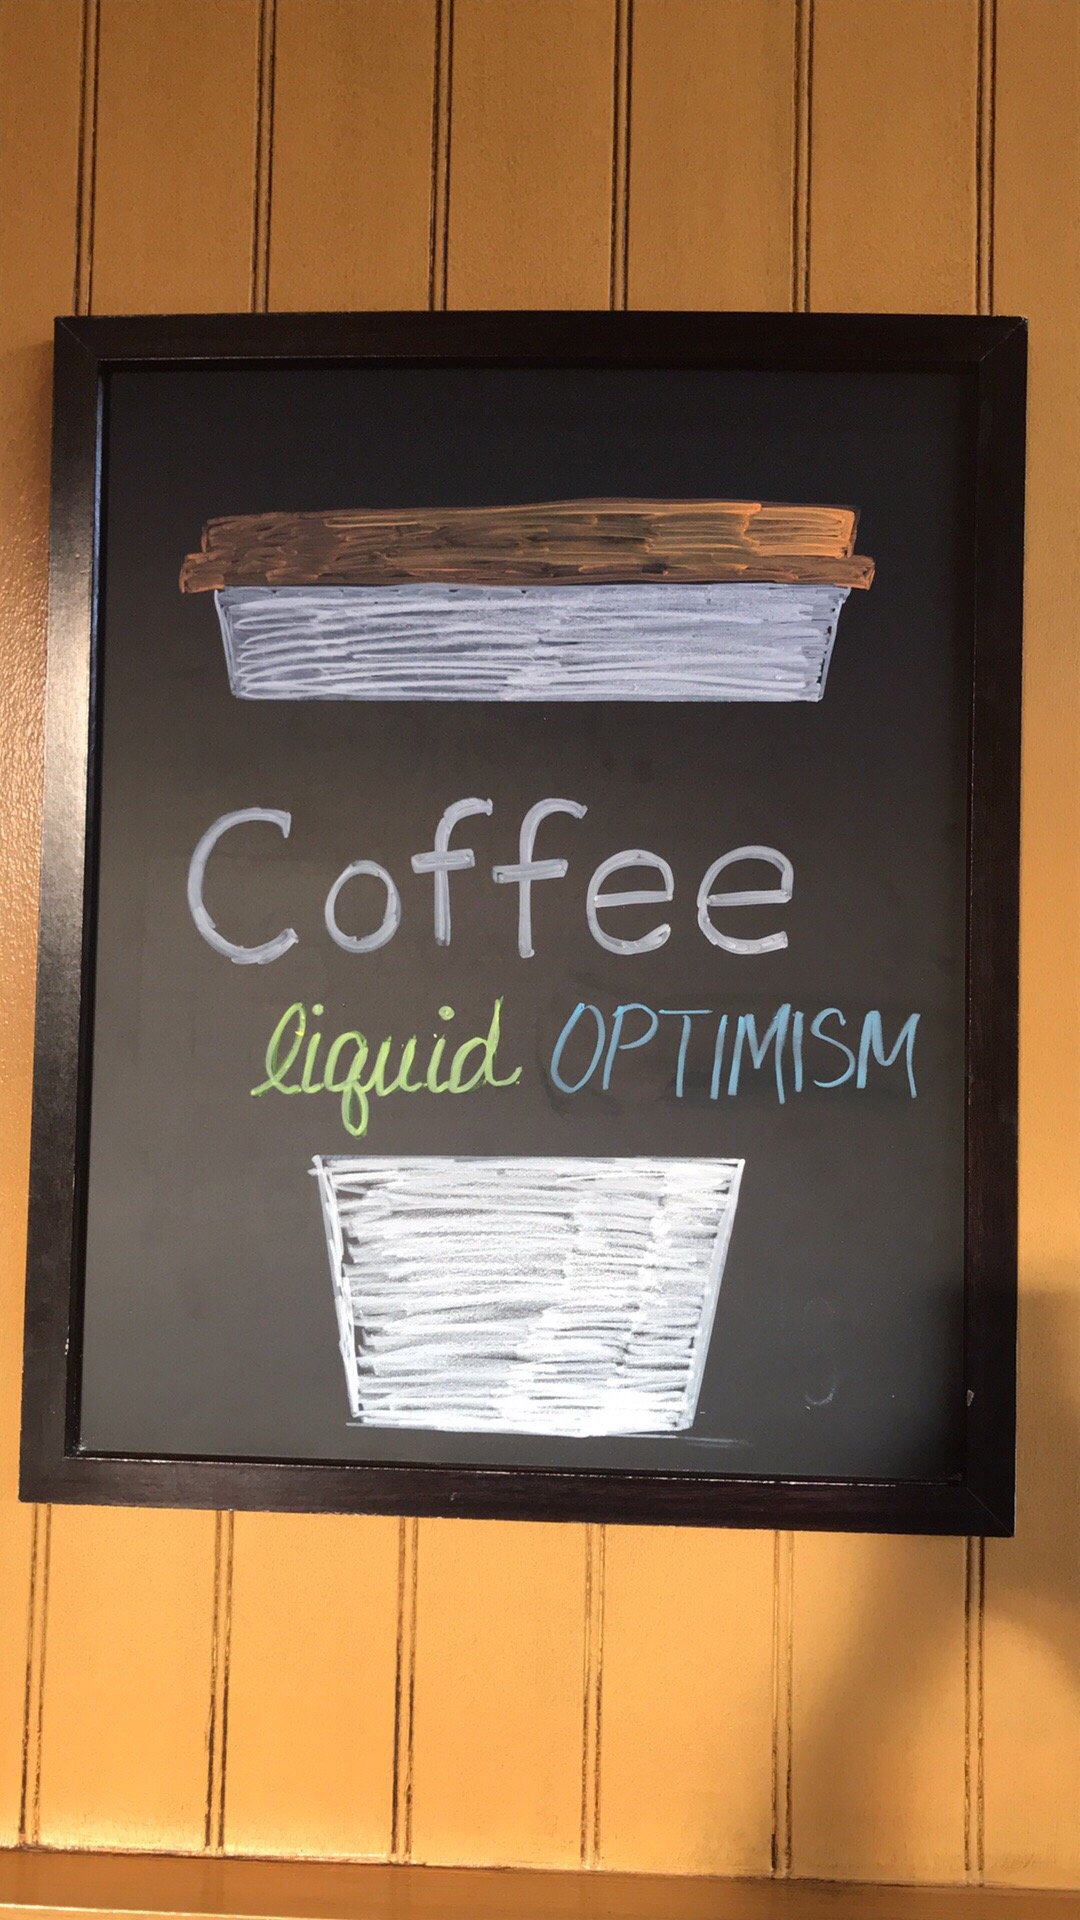 Coffee
liquid OPTIMISM